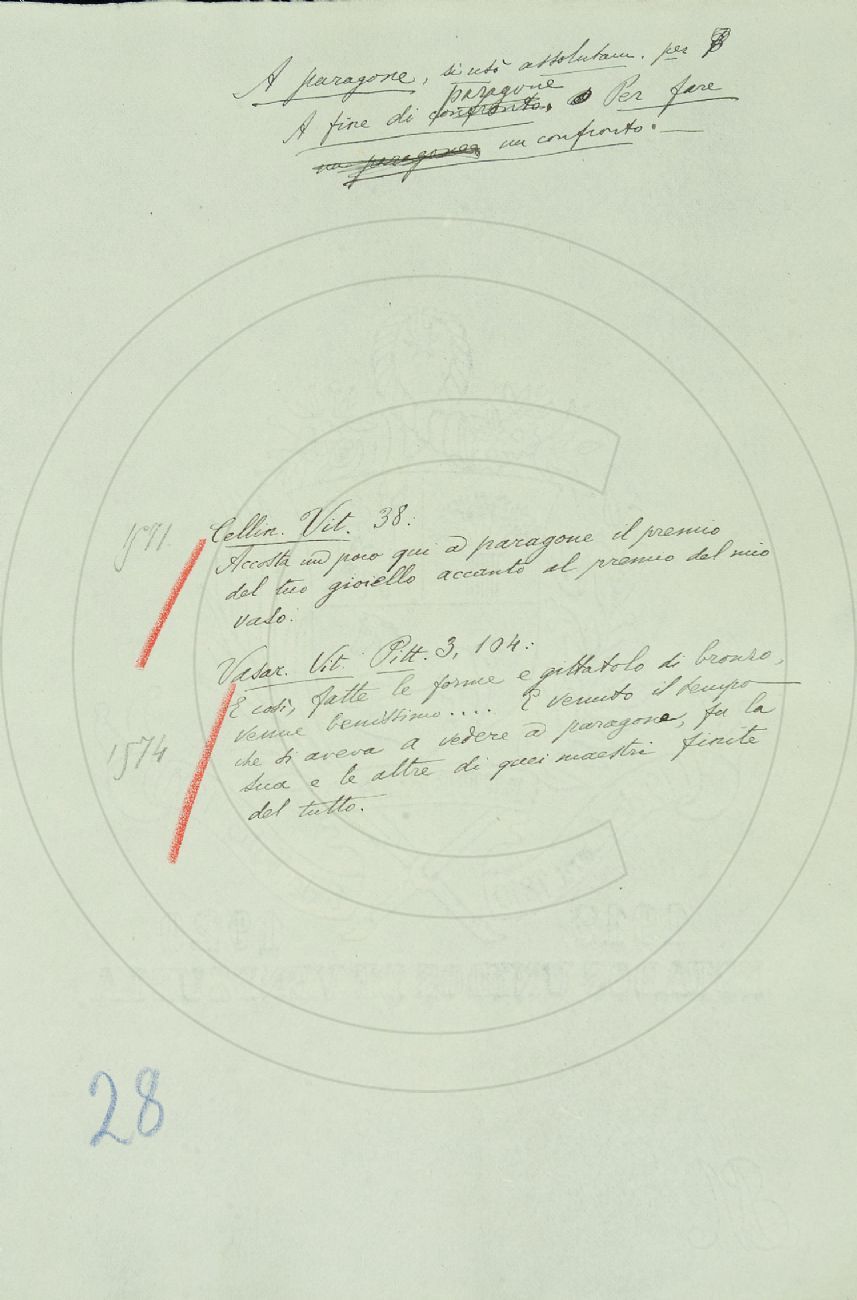 A paragone, si usò assolutam. per
paragone
A fine di confronto. o Per fare
un paragone, un confronto. —
1571.
Cellin. Vit. 38:
Accosta un poco qui a paragone il premio
del tuo gioiello accanto al premio del mio
vaso.
Vasar. Vit. Pitt. 3, 104:
E così, fatte le forme e gittatolo di bronzo,
venne benissimo.... E venuto il tempo
1574
che si aveva a vedere a paragone, fu la
sua e le altre di quei maestri finite
del tutto.
28